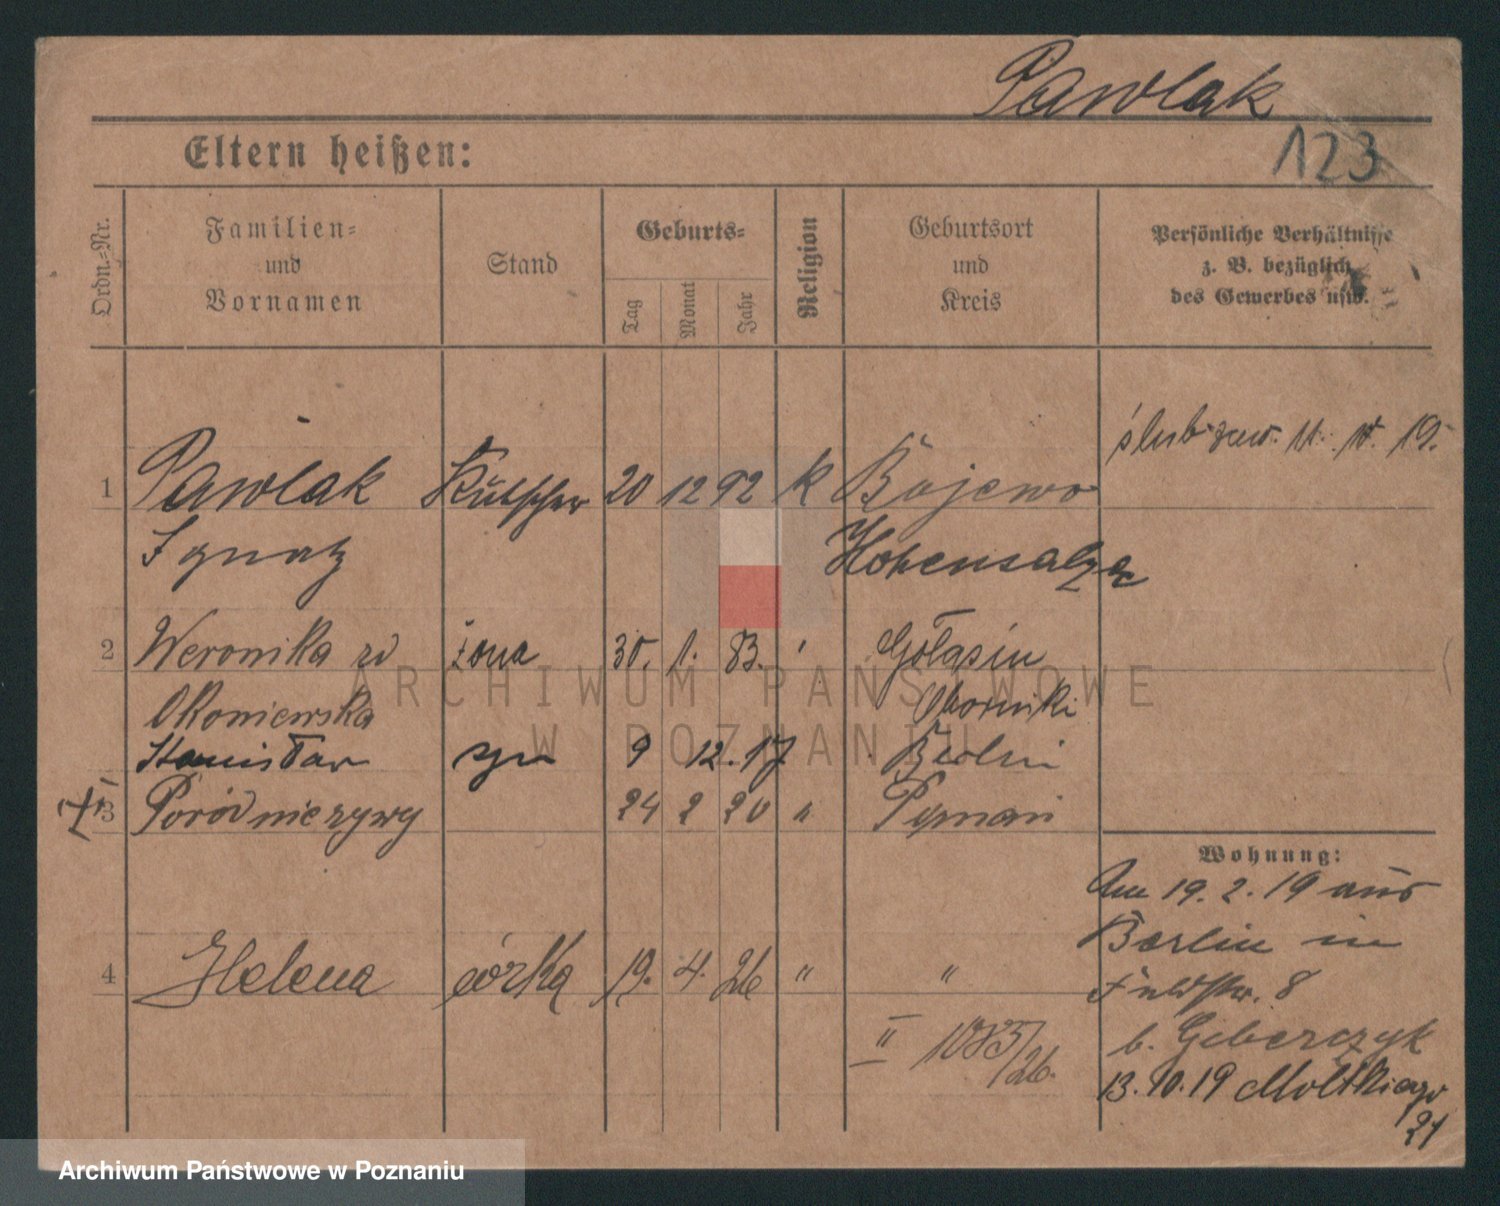 Pawlak
123
Eltern heißen:
Ordn.-Nr.
Familien-
und
Vornamen
Stand
Geburts-
Tag
Monat
Jahr
Religion
Geburtsort
und
Kreis
Persönliche Verhältnisse
z. B. bezüglich
des Gewerbes usw.
ślub zaw. 11. 10. 19.
1 Pawlak Kutscher 20 12 92 k Bojewo
Ignatz Hohensalza
2 Weronika zd żona 30. 1. 83. " Gołąsin
Okoniewska Oborniki
Stanisław syn 9 12. 17 Berlin
3 Poród nieżywy 24 2 20 " Poznań
Wohnung:
Am 19. 2. 19 aus
Berlin in
Feldstr. 8
4 Helena córka 19. 4. 26 " "
II 1083/26.
b. Geberczyk
13. 10. 19 Moltkiego
21
ARCHIWUM PAŃSTWOWE
W POZNANIU
Archiwum Państwowe w Poznaniu